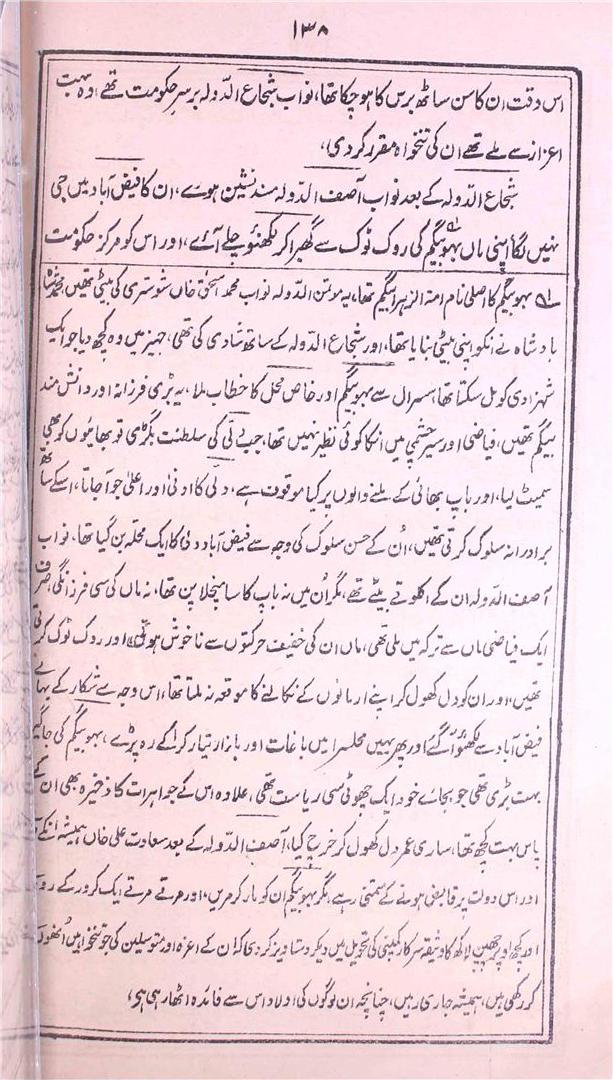 ۱۳۸
اس وقت ان کا سن ساٹھ برس کا ہو چکا تھا، نواب شجاع الدولہ برسرِ حکومت تھے، وہ بہت
اعزاز سے ملے تھے ان کی تنخواہ مقرر کر دی،
شجاع الدولہ کے بعد نواب آصف الدولہ مسند نشین ہوے، ان کا فیض آباد میں جی
نہیں لگا اپنی ماں بہو بیگم کی روک ٹوک سے گھبرا کر لکھنؤ چلے آئے، اور اس کو مرکز حکومت
۱؎ بہو بیگم کا اصلی نام امۃ الزہرا بیگم تھا، یہ موتمن الدولہ نواب محمد اسحٰق خاں شوستری کی بیٹی تھیں، محمد شاہ
بادشاہ نے انکو اپنی بیٹی بنایا تھا، اور شجاع الدولہ کے ساتھ شادی کی تھی، جہیز میں وہ کچھ دیا جو ایک
شہزادی کو مل سکتا تھا، سسرال سے بہو بیگم اور خاص محل کا خطاب ملا، یہ بڑی فرزانہ اور دانش مند
بیگم تھیں، فیاضی اور سیر چشمی میں انکا کوئی نظیر نہیں تھا، جب دلی کی سلطنت بگڑی تو بھائیوں کو بھی
سمیٹ لیا، اور باپ بھائی کے ملنے والوں پر کیا موقوف ہے، دلی کا ادنیٰ اور اعلیٰ جو آجاتا، اسکے ساتھ
برادرانہ سلوک کرتی تھیں، اُن کے حسن سلوک کی وجہ سے فیض آباد دلی کا ایک محلہ بن گیا تھا، نواب
آصف الدولہ ان کے اکلوتے بیٹے تھے، مگر اُن میں نہ باپ کا سا منچلا پن تھا، نہ ماں کی سی فرزانگی، صرف
ایک فیاضی ماں سے ترکہ میں ملی تھی، ماں ان کی خفیف حرکتوں سے ناخوش ہوتی، اور روک ٹوک کرتی
تھیں، اور ان کو دل کھول کر اپنے ارمانوں کے نکالنے کا موقعہ نہ ملتا تھا، اس وجہ سے شکار کے بہانے
فیض آباد سے لکھنؤ آ گئے اور پھر یہیں محلسرا میں باغات اور بازار تیار کرا کے رہ پڑے، بہو بیگم کی جاگیر
بہت بڑی تھی جو بجائے خود ایک چھوٹی سی ریاست تھی، علاوہ اس کے جواہرات کا ذخیرہ بھی ان کے
پاس بہت کچھ تھا، ساری عمر دل کھول کر خرچ کیا، آصف الدولہ کے بعد سعادت علی خاں ہمیشہ انکے
اور اس دولت پر قابض ہونے کے متمنی رہے، مگر بہو بیگم ان کو مار کر مریں، اور مرتے مرتے ایک کرور کے
اور کچھ اوپر چھپن لاکھ کا وثیقہ سرکار کمپنی کی تحویل میں دیکر دستاویز کر دی کہ ان کے اعزہ اور متوسلین کی جو تنخواہیں اُنھوں
کر رکھی ہیں، ہمیشہ جاری رہیں، چنانچہ ان لوگوں کی اولاد اس سے فائدہ اٹھا رہی ہی،